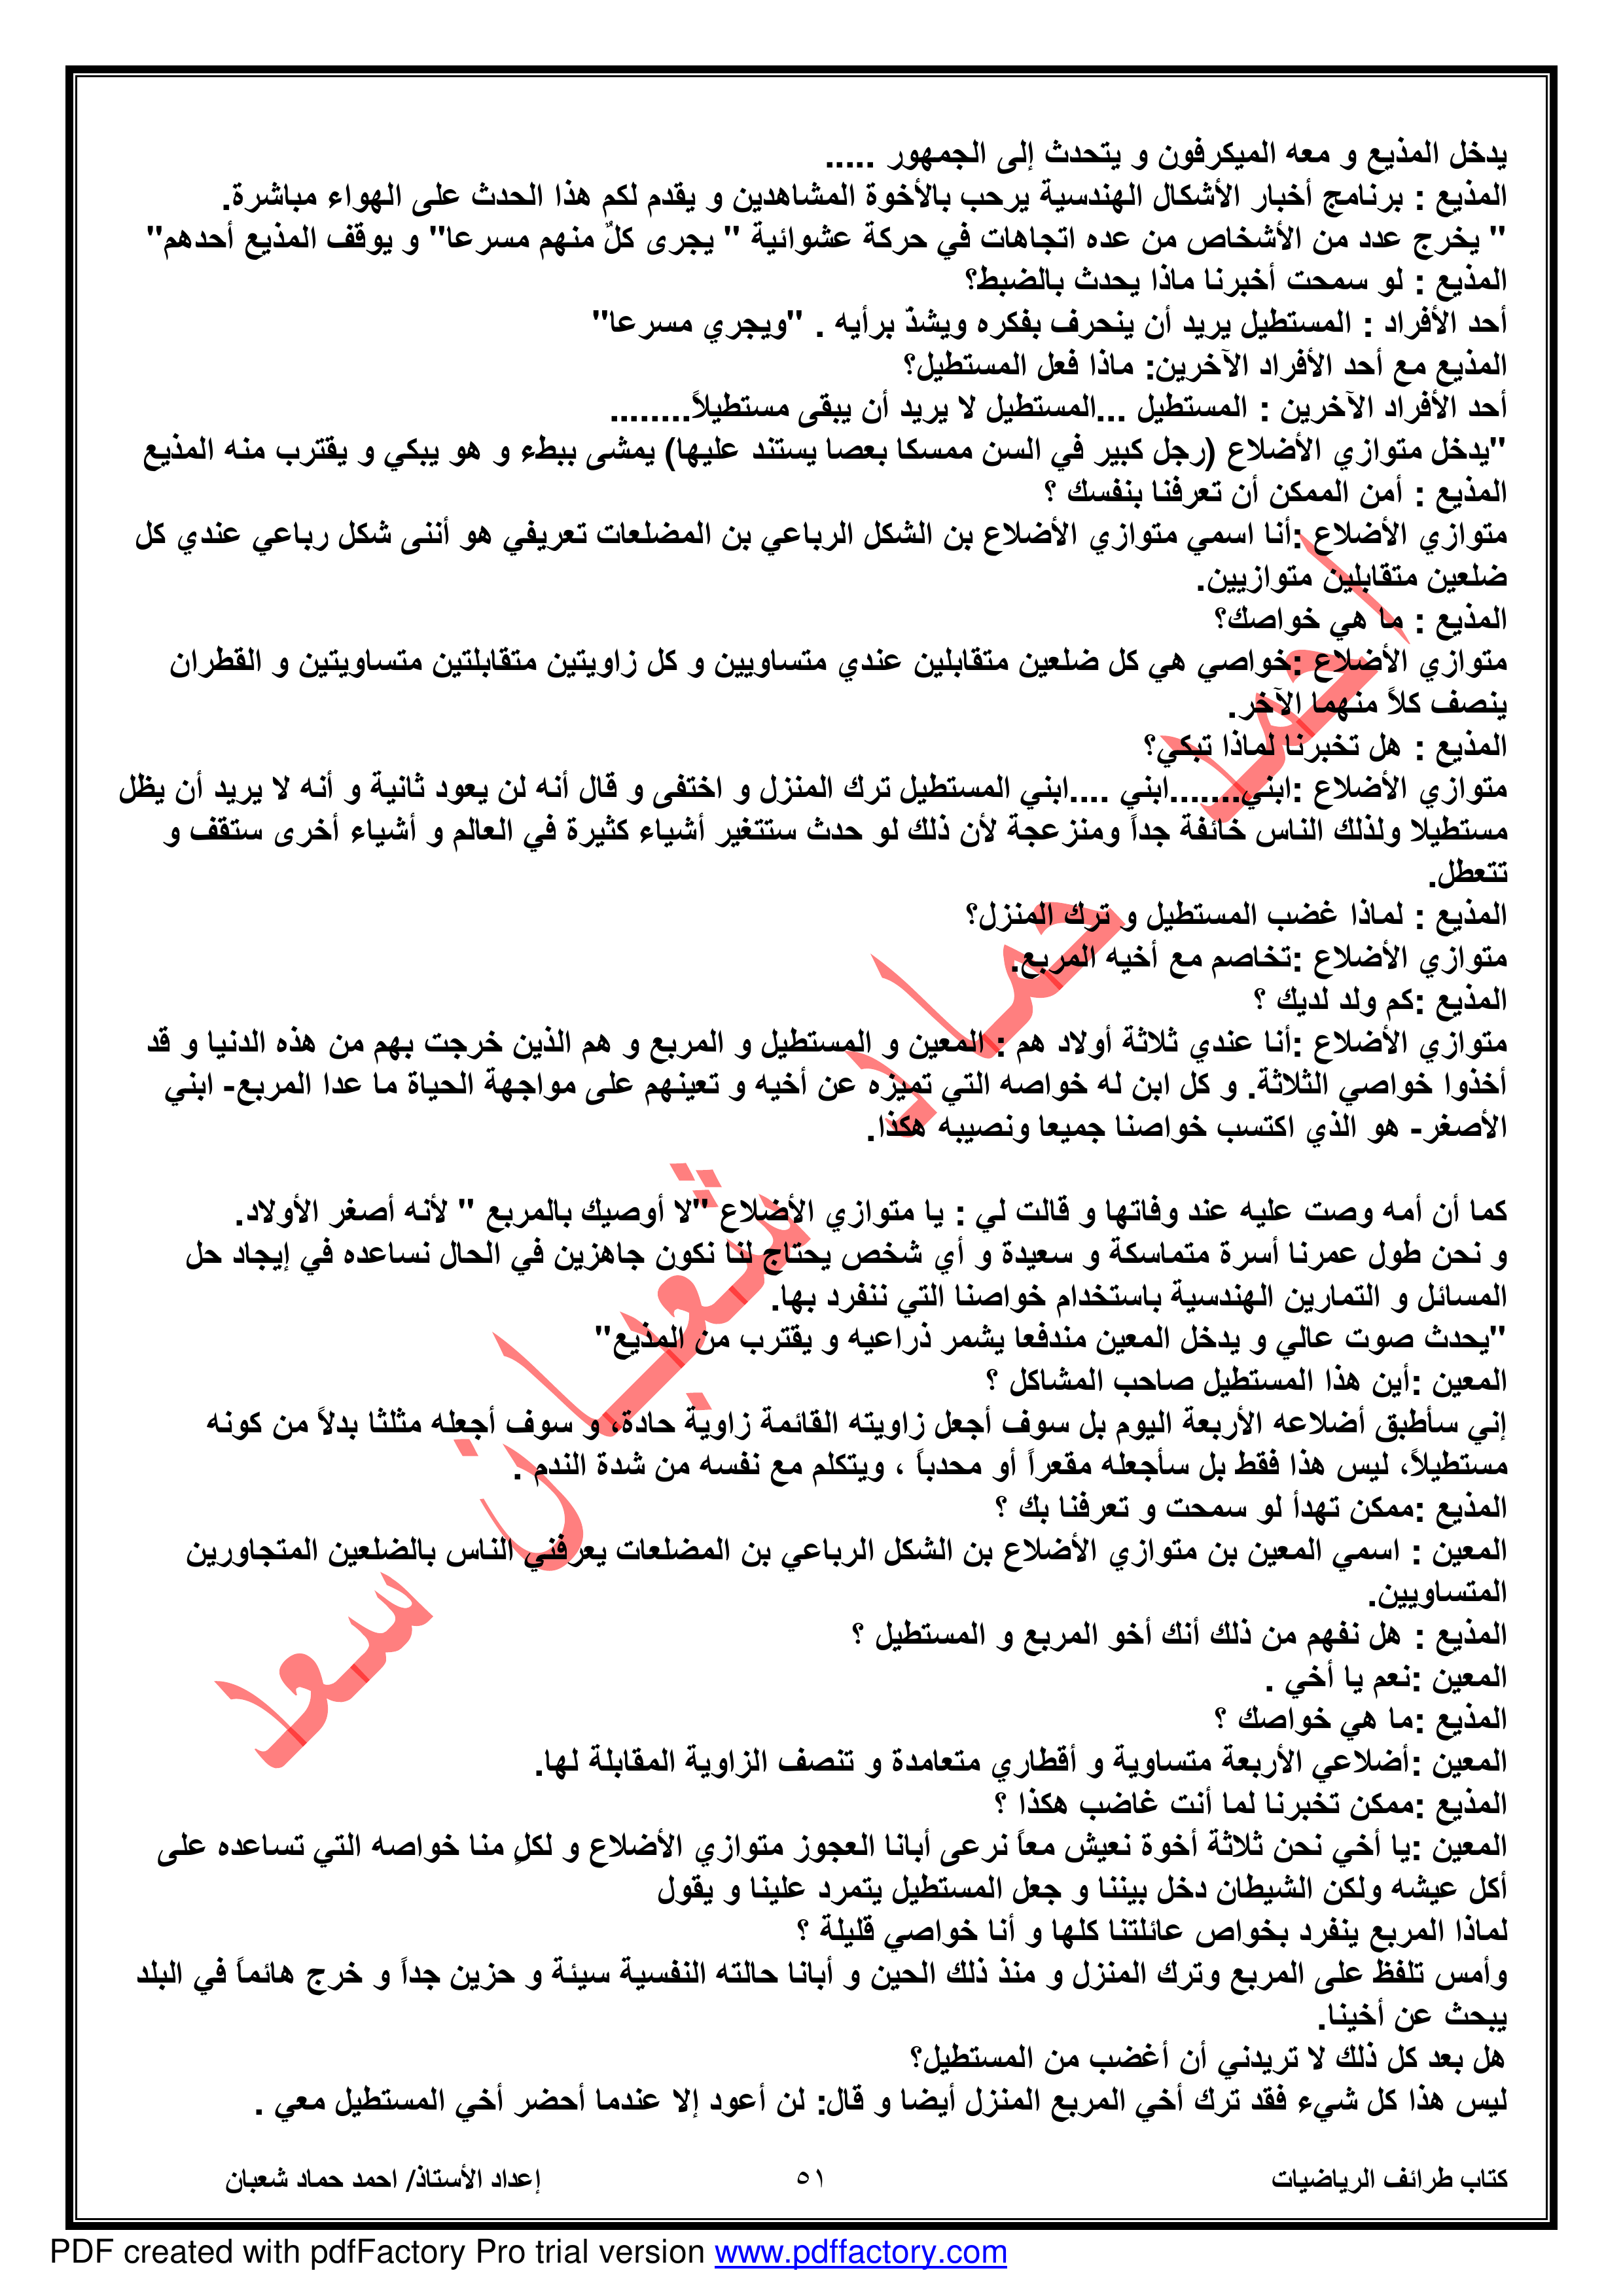 يدخل المذيع و معه الميكرفون و يتحدث إلى الجمهور .....
المذيع : برنامج أخبار الأشكال الهندسية يرحب بالأخوة المشاهدين و يقدم لكم هذا الحدث على الهواء مباشرة.
" يخرج عدد من الأشخاص من عده اتجاهات في حركة عشوائية " يجرى كلٌ منهم مسرعا" و يوقف المذيع أحدهم"
المذيع : لو سمحت أخبرنا ماذا يحدث بالضبط؟
أحد الأفراد : المستطيل يريد أن ينحرف بفكره ويشذّ برأيه . "ويجري مسرعا"
المذيع مع أحد الأفراد الآخرين: ماذا فعل المستطيل؟
أحد الأفراد الآخرين : المستطيل ...المستطيل لا يريد أن يبقى مستطيلاً........
"يدخل متوازي الأضلاع (رجل كبير في السن ممسكا بعصا يستند عليها) يمشى ببطء و هو يبكي و يقترب منه المذيع
المذيع : أمن الممكن أن تعرفنا بنفسك ؟
متوازي الأضلاع :أنا اسمي متوازي الأضلاع بن الشكل الرباعي بن المضلعات تعريفي هو أننى شكل رباعي عندي كل
ضلعين متقابلين متوازيين.
المذيع : ما هي خواصك؟
متوازي الأضلاع :خواصي هي كل ضلعين متقابلين عندي متساويين و كل زاويتين متقابلتين متساويتين و القطران
ينصف كلاً منهما الآخر.
المذيع : هل تخبرنا لماذا تبكي؟
متوازي الأضلاع :ابني.......ابني ....ابني المستطيل ترك المنزل و اختفى و قال أنه لن يعود ثانية و أنه لا يريد أن يظل
مستطيلا ولذلك الناس خائفة جداً ومنزعجة لأن ذلك لو حدث ستتغير أشياء كثيرة في العالم و أشياء أخرى ستقف و
تتعطل.
المذيع : لماذا غضب المستطيل و ترك المنزل؟
متوازي الأضلاع :تخاصم مع أخيه المربع.
المذيع :كم ولد لديك ؟
متوازي الأضلاع :أنا عندي ثلاثة أولاد هم : المعين و المستطيل و المربع و هم الذين خرجت بهم من هذه الدنيا و قد
أخذوا خواصي الثلاثة. و كل ابن له خواصه التي تميزه عن أخيه و تعينهم على مواجهة الحياة ما عدا المربع- ابني
الأصغر- هو الذي اكتسب خواصنا جميعا ونصيبه هكذا.
كما أن أمه وصت عليه عند وفاتها و قالت لي : يا متوازي الأضلاع "لا أوصيك بالمربع " لأنه أصغر الأولاد.
و نحن طول عمرنا أسرة متماسكة و سعيدة و أي شخص يحتاج لنا نكون جاهزين في الحال نساعده في إيجاد حل
المسائل و التمارين الهندسية باستخدام خواصنا التي ننفرد بها.
"يحدث صوت عالي و يدخل المعين مندفعا يشمر ذراعيه و يقترب من المذيع"
المعين :أين هذا المستطيل صاحب المشاكل ؟
إني سأطبق أضلاعه الأربعة اليوم بل سوف أجعل زاويته القائمة زاوية حادة، و سوف أجعله مثلثا بدلاً من كونه
مستطيلاً، ليس هذا فقط بل سأجعله مقعراً أو محدباً ، ويتكلم مع نفسه من شدة الندم .
المذيع :ممكن تهدأ لو سمحت و تعرفنا بك ؟
المعين : اسمي المعين بن متوازي الأضلاع بن الشكل الرباعي بن المضلعات يعرفني الناس بالضلعين المتجاورين
المتساويين.
المذيع : هل نفهم من ذلك أنك أخو المربع و المستطيل ؟
المعين :نعم يا أخي .
المذيع :ما هي خواصك ؟
المعين :أضلاعي الأربعة متساوية و أقطاري متعامدة و تنصف الزاوية المقابلة لها.
المذيع :ممكن تخبرنا لما أنت غاضب هكذا ؟
المعين :يا أخي نحن ثلاثة أخوة نعيش معاً نرعى أبانا العجوز متوازي الأضلاع و لكلٍ منا خواصه التي تساعده على
أكل عيشه ولكن الشيطان دخل بيننا و جعل المستطيل يتمرد علينا و يقول
لماذا المربع ينفرد بخواص عائلتنا كلها و أنا خواصي قليلة ؟
وأمس تلفظ على المربع وترك المنزل و منذ ذلك الحين و أبانا حالته النفسية سيئة و حزين جداً و خرج هائماً في البلد
يبحث عن أخينا.
هل بعد كل ذلك لا تريدني أن أغضب من المستطيل؟
ليس هذا كل شيء فقد ترك أخي المربع المنزل أيضا و قال: لن أعود إلا عندما أحضر أخي المستطيل معي .
احمد حماد شعبان سعد
كتاب طرائف الرياضيات ٥١ إعداد الأستاذ/ احمد حماد شعبان
PDF created with pdfFactory Pro trial version www.pdffactory.com